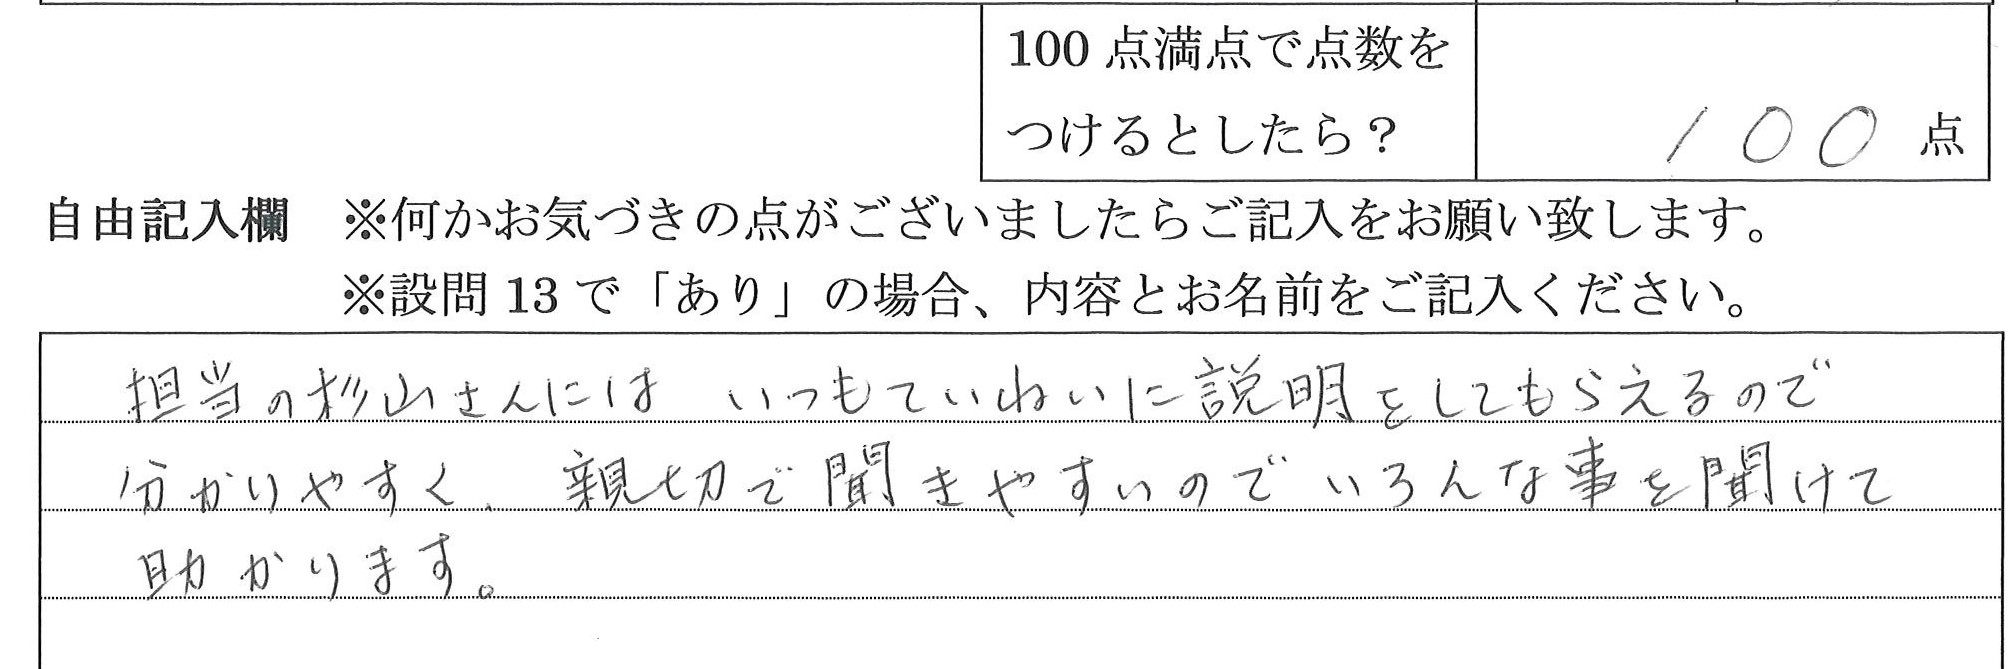 100点満点で点数を
つけるとしたら?
100 点
自由記入欄 ※何かお気づきの点がございましたらご記入をお願い致します。
※設問13で「あり」の場合、内容とお名前をご記入ください。
担当の杉山さんには いつもていねいに説明をしてもらえるので
分かりやすく、親切で聞きやすいのでいろんな事を聞けて
助かります。